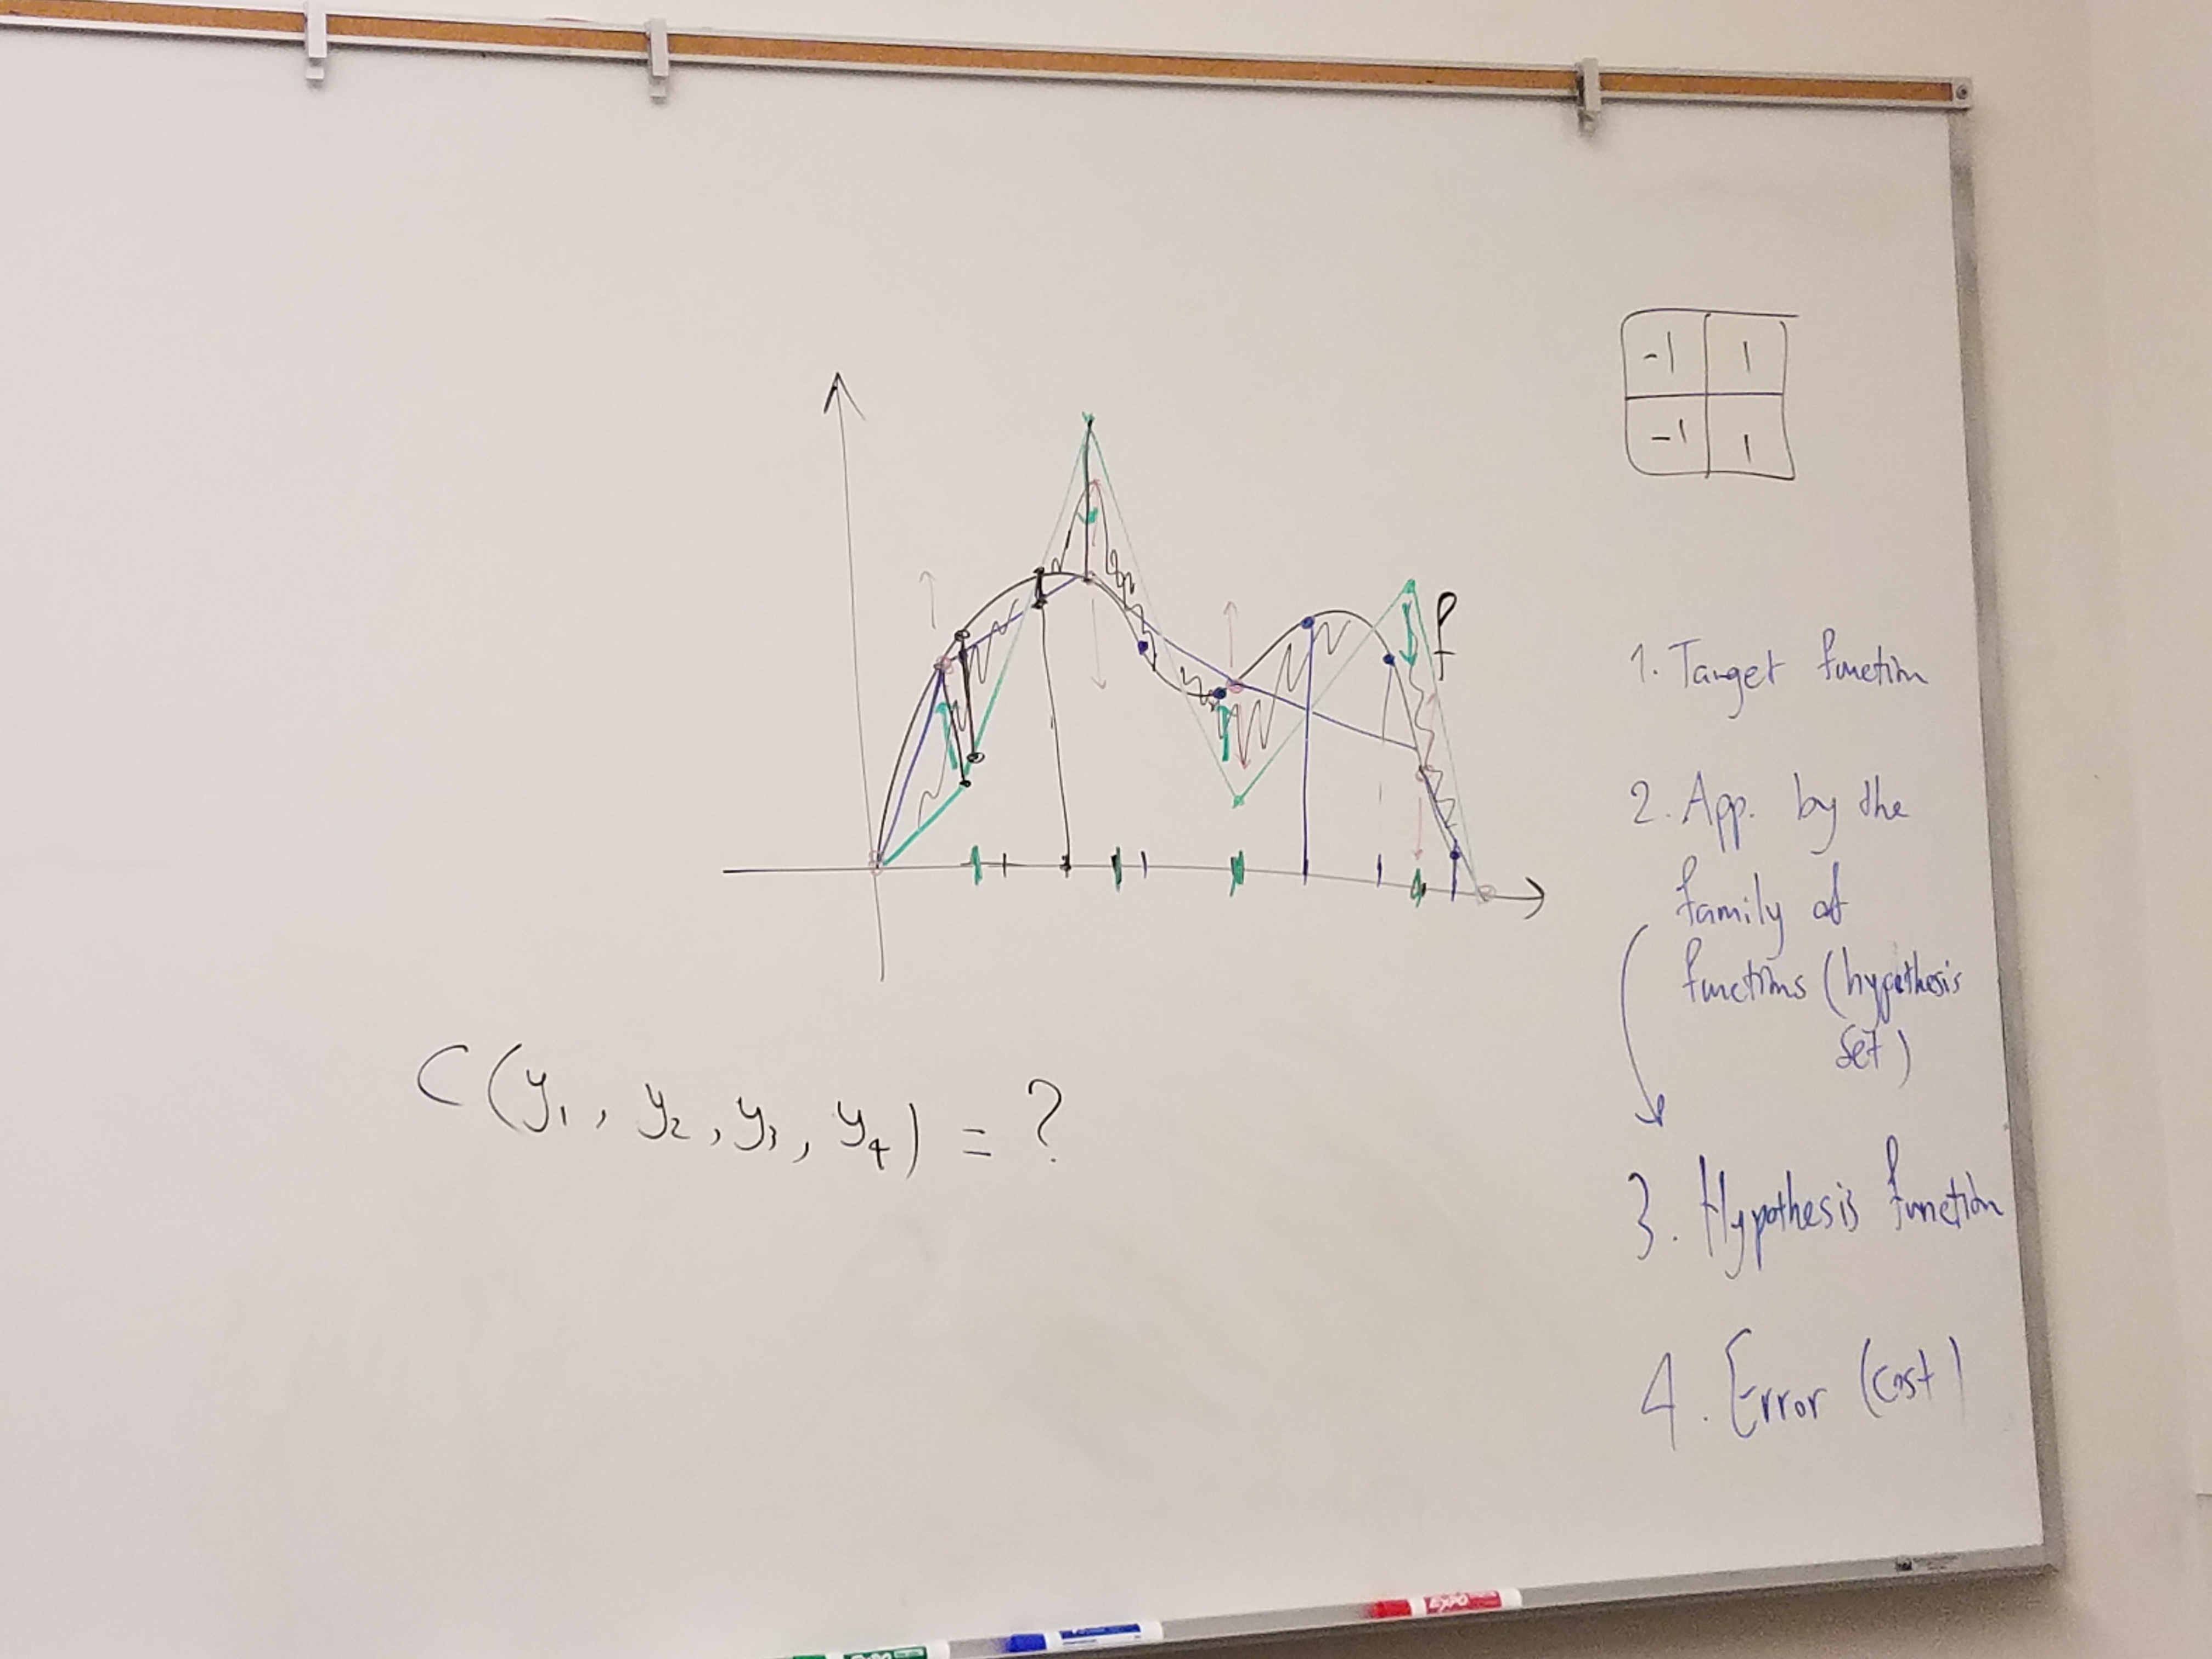 -1 1
-1 1
f
1. Target function
2. App. by the
family of
functions (hypothesis
set)
3. Hypothesis function
4. Error (cost)
C(y₁, y₂, y₃, y₄) = ?
EXPO